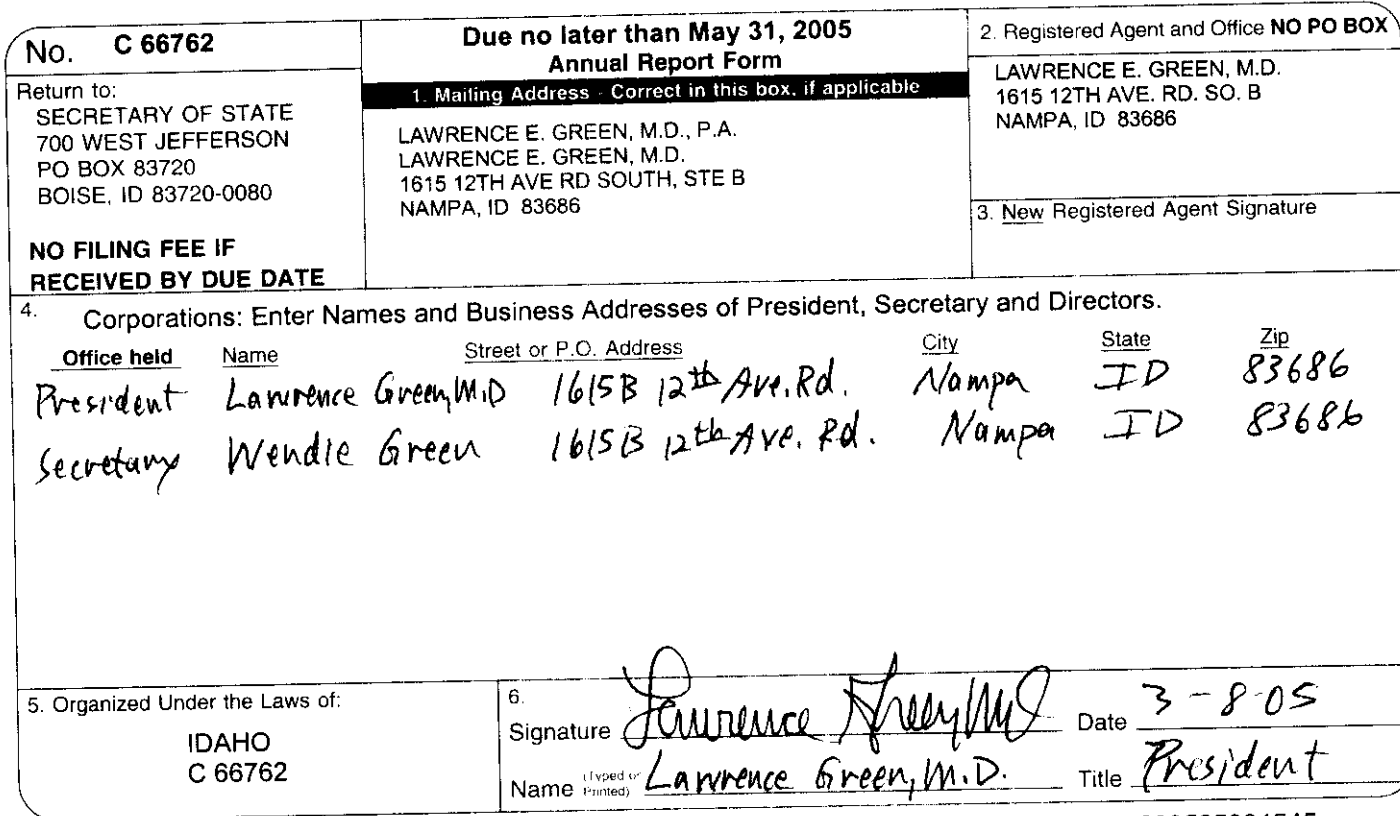 No. C 66762
Return to:
SECRETARY OF STATE
700 WEST JEFFERSON
PO BOX 83720
BOISE, ID 83720-0080
NO FILING FEE IF
RECEIVED BY DUE DATE
Due no later than May 31, 2005
Annual Report Form
1. Mailing Address - Correct in this box, if applicable
LAWRENCE E. GREEN, M.D., P.A.
LAWRENCE E. GREEN, M.D.
1615 12TH AVE RD SOUTH, STE B
NAMPA, ID 83686
2. Registered Agent and Office NO PO BOX
LAWRENCE E. GREEN, M.D.
1615 12TH AVE. RD. SO. B
NAMPA, ID 83686
3. New Registered Agent Signature
4. Corporations: Enter Names and Business Addresses of President, Secretary and Directors.
Office held Name Street or P.O. Address City State Zip
President Lawrence Green, M.D 1615B 12th Ave. Rd. Nampa ID 83686
Secretary Wendie Green 1615B 12th Ave. Rd. Nampa ID 83686
5. Organized Under the Laws of:
IDAHO
C 66762
6.
Signature Lawrence Green MD Date 3-8-05
Name (Typed or Printed) Lawrence Green, M.D. Title President